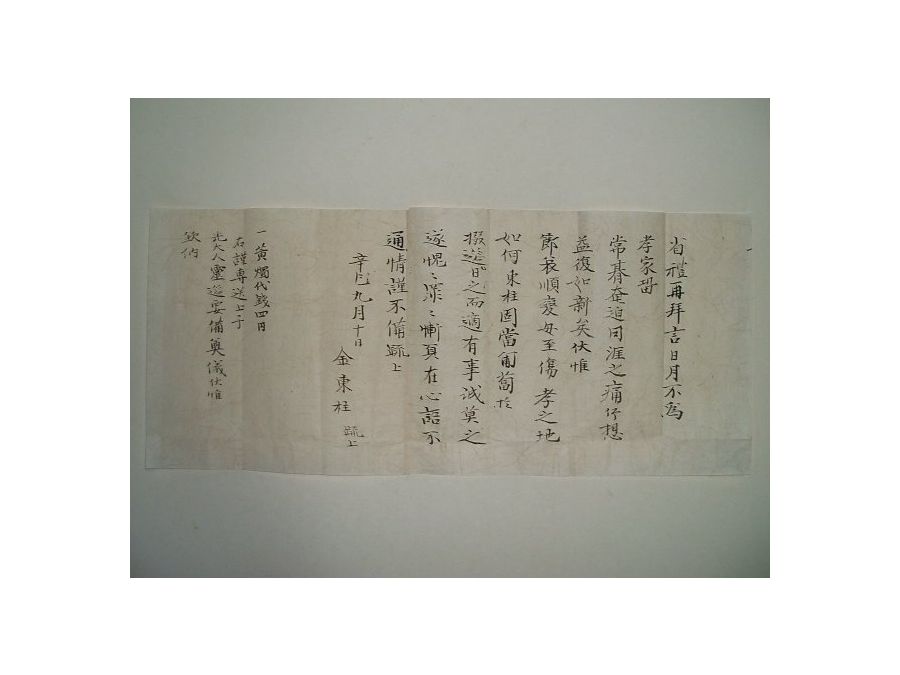 省禮再拜言日月不爲
孝家留
常朞奄迫罔涯之痛伏想
益復如新矣伏惟
節哀順變毋至傷孝之地
如何東柱固當匍匐於
掇筵日之而適有事誠莫之
遂愧〻深〻慚負在心語不
通情謹不備疏上
辛 九月十日
金東柱 疏上
一黃燭代錢四円
右謹專送上于
先大人靈筵要備奠儀伏惟
欽納